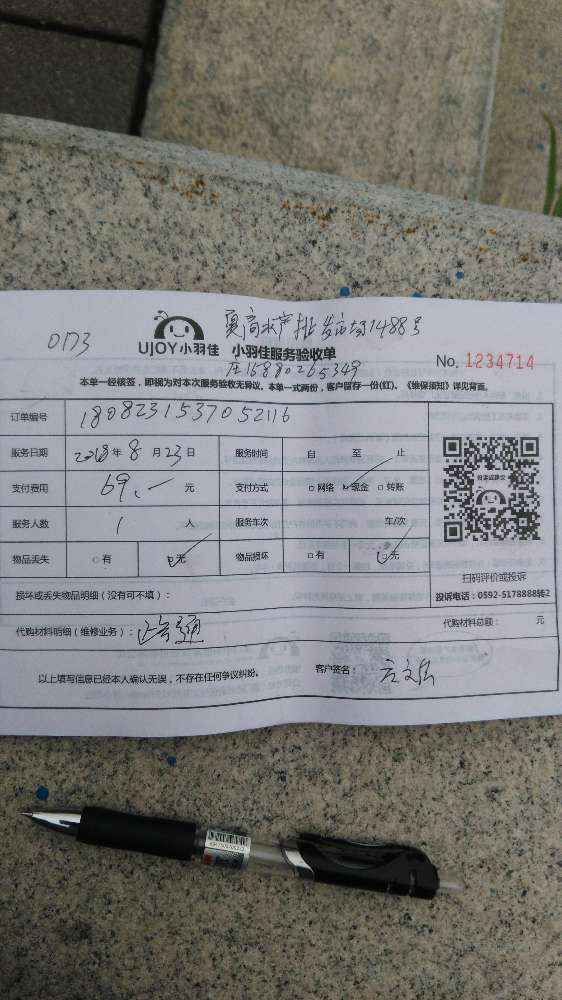 夏商水产批发市场1488号
0173
UJOY小羽佳 小羽佳服务验收单
No. 1234714
庄15880265349
本单一经核签,即视为对本次服务验收无异议。本单一式两份,客户留存一份(红)。《维保须知》详见背面。
订单编号 1808231537052116
服务日期 2018年8月23日 服务时间 自 至 止
支付费用 69.— 元 支付方式 □网络 ☑现金 □转账
服务人数 1 人 服务车次 车/次
物品丢失 □有 ☑无 物品损坏 □有 ☑无
扫码评价或投诉
损坏或丢失物品明细(没有可不填):
投诉电话:0592-5178888转2
代购材料明细(维修业务): 代购材料总额: 元
以上填写信息已经本人确认无误,不存在任何争议纠纷。 客户签名: